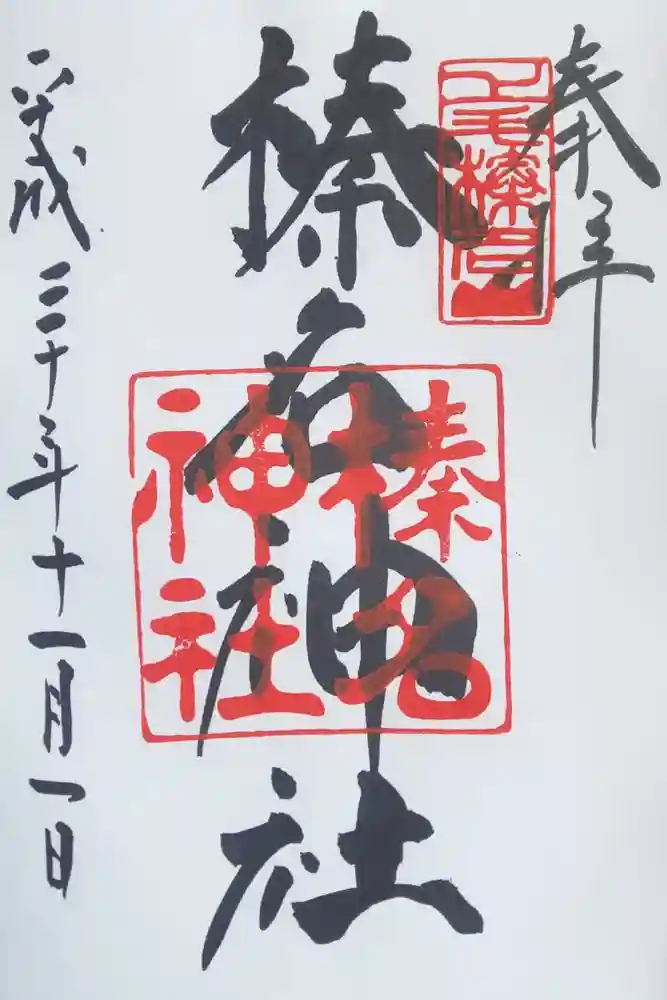 奉拝
上毛榛名山
榛名神社
榛名神社
平成三十年十一月一日